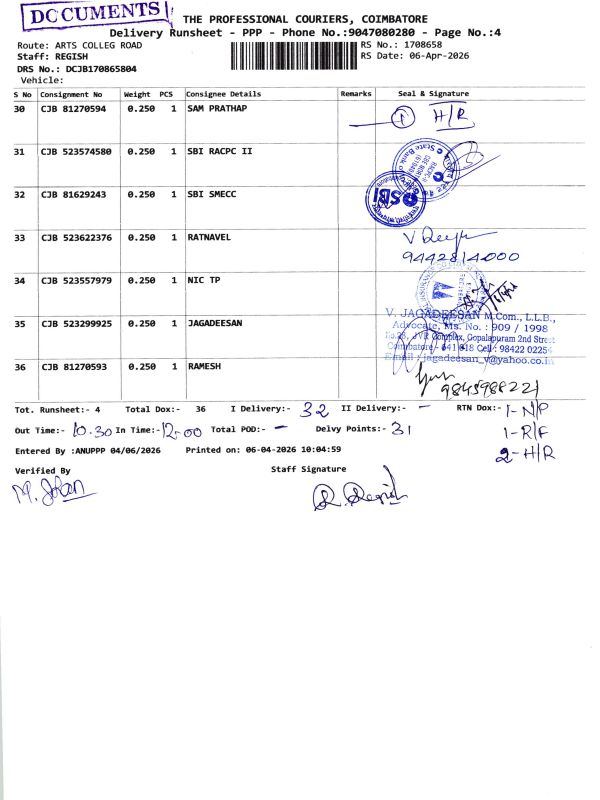 DOCUMENTS
THE PROFESSIONAL COURIERS, COIMBATORE
Delivery Runsheet - PPP - Phone No.:9047080280 - Page No.:4
Route: ARTS COLLEG ROAD
RS No.: 1708658
Staff: REGISH
RS Date: 06-Apr-2026
DRS No.: DCJB170865804
Vehicle:
S No Consignment No Weight PCS Consignee Details Remarks Seal & Signature
30 CJB 81270594 0.250 1 SAM PRATHAP 1 H/R
31 CJB 523574580 0.250 1 SBI RACPC II
32 CJB 81629243 0.250 1 SBI SMECC SBI
33 CJB 523622376 0.250 1 RATNAVEL
9442814000
34 CJB 523557979 0.250 1 NIC TP
35 CJB 523299925 0.250 1 JAGADEESAN
V. JAGADEESAN M.Com., L.L.B.,
Advocate, Ms. No. : 909 / 1998
JVR Complex, Gopalapuram 2nd Street
Coimbatore - 641 018 Cell : 98422 02254
Email : jagadeesan_v@yahoo.co.in
36 CJB 81270593 0.250 1 RAMESH
9845988221
Tot. Runsheet:- 4 Total Dox:- 36 I Delivery:- 32 II Delivery:- - RTN Dox:- 1-N/P
Out Time:- 10.30 In Time:- 12-00 Total POD:- - Delvy Points:- 31 1-R/F
2-H/R
Entered By :ANUPPP 04/06/2026 Printed on: 06-04-2026 10:04:59
Verified By
Staff Signature